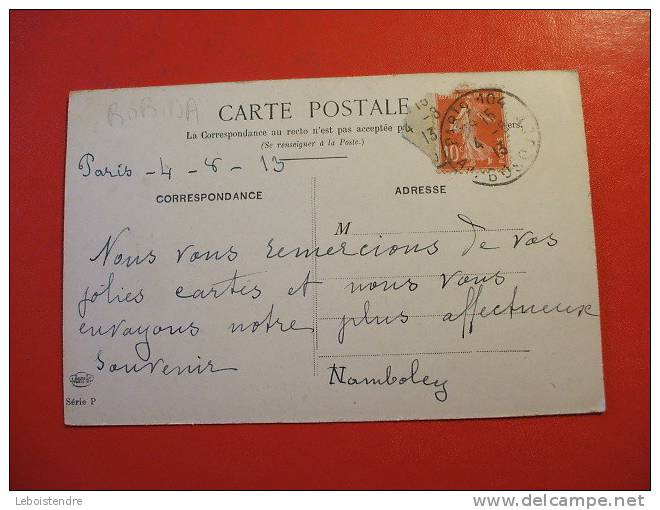 BOBINA
CARTE POSTALE
La Correspondance au recto n'est pas acceptée
(Se renseigner à la Poste.)
Paris - 4 - 8 - 13
CORRESPONDANCE
ADRESSE
M
Nous vous remercions de vos
jolies cartes et nous vous
envoyons notre plus affectueux
souvenir
Namboley
Série P
10
PARIS 104
4 -8 13
Leboistendre
delcampe.net